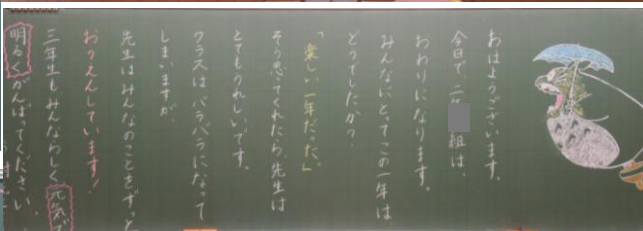 おはようございます。
今日で、二年 組は、
おわりになります。
みんなにとってこの一年は
どうでしたか？
「楽しい一年だった。」
そう思てくれたら、先生は
とてもうれしいです。
クラスは、バラバラになって
しまいますが、
先生はみんなのことをずっと
おうえんしています！
三年生も、みんならしく元気で
明るくがんばってください。